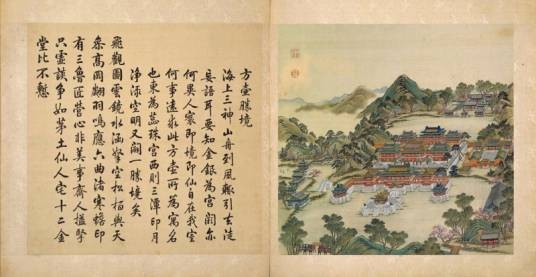 方壺勝境
海上三神山舟到風輒引去徒
妄語耳要知金銀為宮闕亦
何異人寰即境即仙自在我室
何事遠求此方壺所為寓名
也東為蕊珠宮西則三潭印月
淨淥空明又闢一勝境矣
飛觀圖雲鏡水涵拏空松栢與天
參高岡翽羽鳴應六曲渚寒蟾印
有三魯匠營心非美事齊人搤掔
只虛談爭如茅土仙人宅十二金
堂比不慚